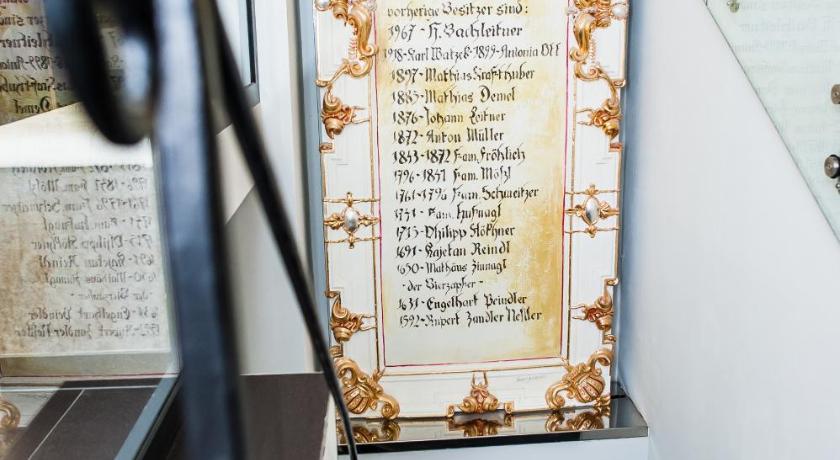 vorherige Besitzer sind:
1967-H. Bachleitner
1918-Karl Watzek-1899-Antonia Ott
1897-Mathias Krafthuber
1883-Mathias Demel
1876-Johann Leitner
1872-Anton Müller
1843-1872 Fam. Fröhlich
1796-1841 Fam. Mößl
1761-1796 Fam. Schweitzer
1731-Fam. Hufnagl
1713-Philipp Stökhner
1691-Kajetan Reindl
1650-Mathäus Zinnagl
-der Bierzapher-
1631-Engelhart Peindler
1592-Rupert Zandler Neßler